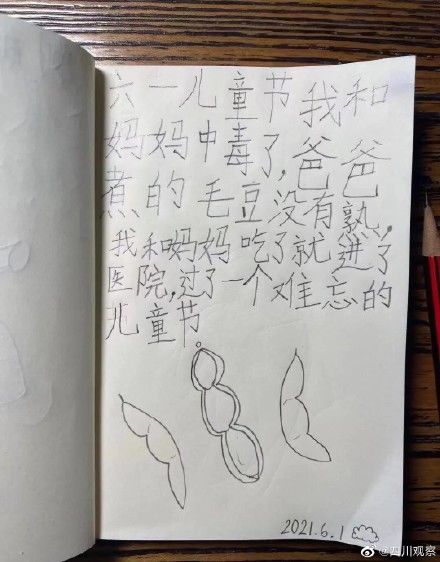 六一儿童节我和
妈妈中毒了,爸爸
煮的毛豆没有熟,
我和妈妈吃了就进了
医院,过了一个难忘的
儿童节。
2021.6.1
@四川观察